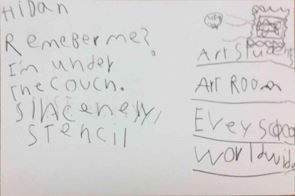 Hi Dan
Remeber me?
I'm under
the couch.
Sincerely,
Stencil
Art Student
Art Room
Evey space
Worldwide